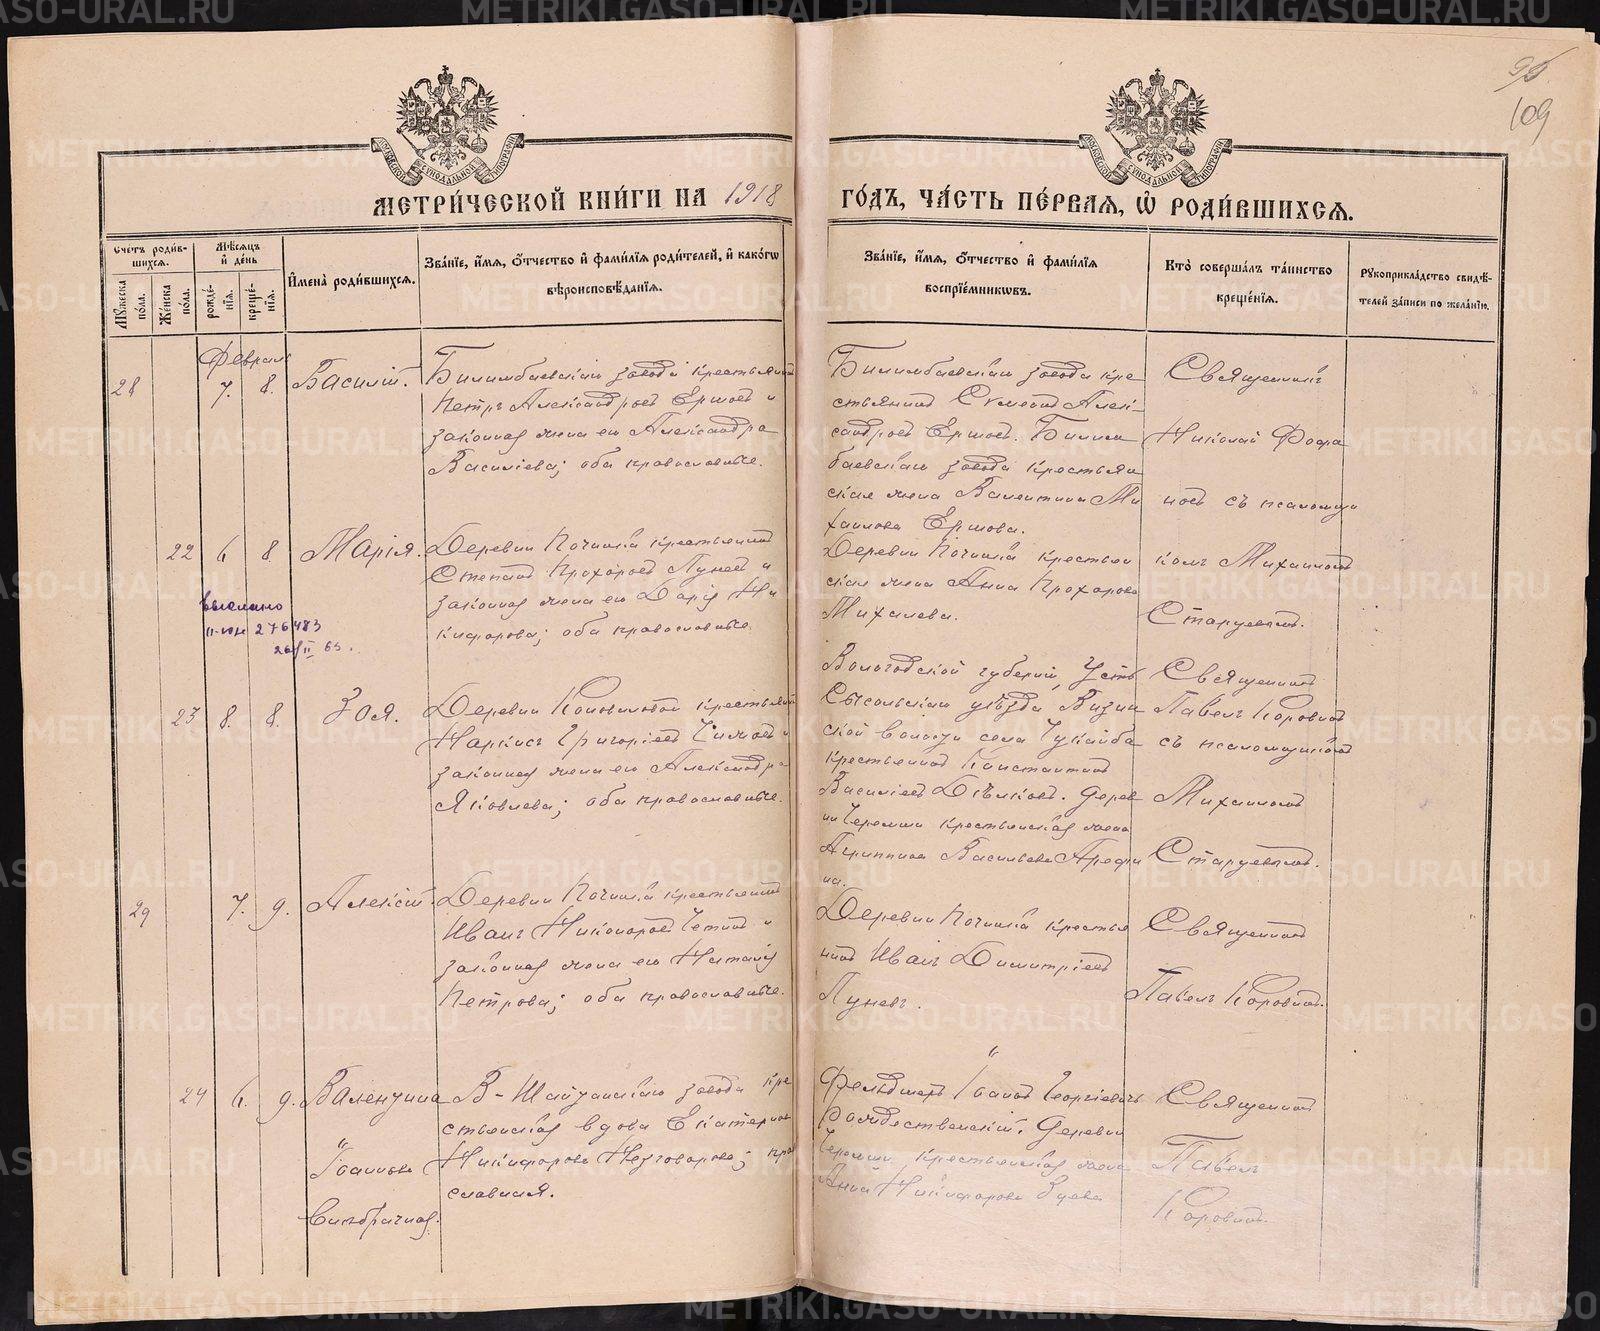 95
109
МЕТРИ́ЧЕСКОЙ КНИ́ГИ НА 1918 ГО́ДЪ, ЧА́СТЬ ПЕ́РВАЯ, Ѡ РОДИ́ВШИХСѦ.
Счетъ роди́вшихсѧ.
Мꙋ́жеска по́ла.
Же́нска по́ла.
Мѣ́сѧцъ и҆ де́нь
рожде́нїѧ.
креще́нїѧ.
И҆мена̀ роди́вшихсѧ.
Зва́нїе, и҆́мѧ, ѻ҆́тчество и҆ фами́лїѧ роди́телей, и҆ како́гѡ
вѣроисповѣ́данїѧ.
Зва́нїе, и҆́мѧ, ѻ҆́тчество и҆ фами́лїѧ
воспрїе́мникѡвъ.
Кто̀ соверша́лъ та́инство
креще́нїѧ.
Рꙋкоприкла́дство свидѣ́-
телей за́писи по жела́нїю.
Февраль
28 7. 8. Василій.
Билимбаевскаго завода крестьянинъ
Петръ Александровъ Ершовъ и
законная жена его Александра
Васильева; оба православные.
Билимбаевскаго завода кре
стьянинъ Симеонъ Алек-
сандровъ Ершовъ. Билим
баевскаго завода крестьян
ская жена Валентина Ми
хаилова Ершова.
Священникъ
Николай
новъ съ псаломщи
22 6. 8. Марія.
Деревни Починка крестьянинъ
Стефанъ Прохоровъ Луневъ и
законная жена его Дарія Ни
кифорова; оба православные.
Деревни Починка крестьян
ская жена Анна Прохорова
Михалева.
комъ Михаиломъ
Старцевымъ.
выслано
276483
26/II 63.
23 8. 8. Зоя.
Деревни Коноваловой крестьянинъ
Наркисъ Григоріевъ и
законная жена его Александра
Яковлева; оба православные.
Вологодской губерніи, Усть
Сысольскаго уѣзда Визин
ской волости села
крестьянинъ Константинъ
Васильевъ. Дерев
ни Черемши крестьянская жена
Агриппина Васильева Арефи
на.
Священникъ
Павелъ Коровинъ
съ псаломщикомъ
Михаиломъ
Старцевымъ.
29 7. 9. Алексій.
Деревни Починка крестьянинъ
Иванъ Никаноровъ и
законная жена его Наталія
Петрова; оба православные.
Деревни Починка крестья
нинъ Иванъ Димитріевъ
Луневъ.
Священникъ
Павелъ Коровинъ.
24 6. 9. Валентина
Іоаннова
Внѣбрачная.
В-Шайтанскаго завода кре
стьянская вдова Екатерина
Никифорова Незговорова; пра
славная.
Фельдшеръ Іоаннъ Георгіевичъ
Рождественскій. Деревни
Черемши крестьянская жена
Анна Никифорова Зуева
Священникъ
Павелъ
Коровинъ.